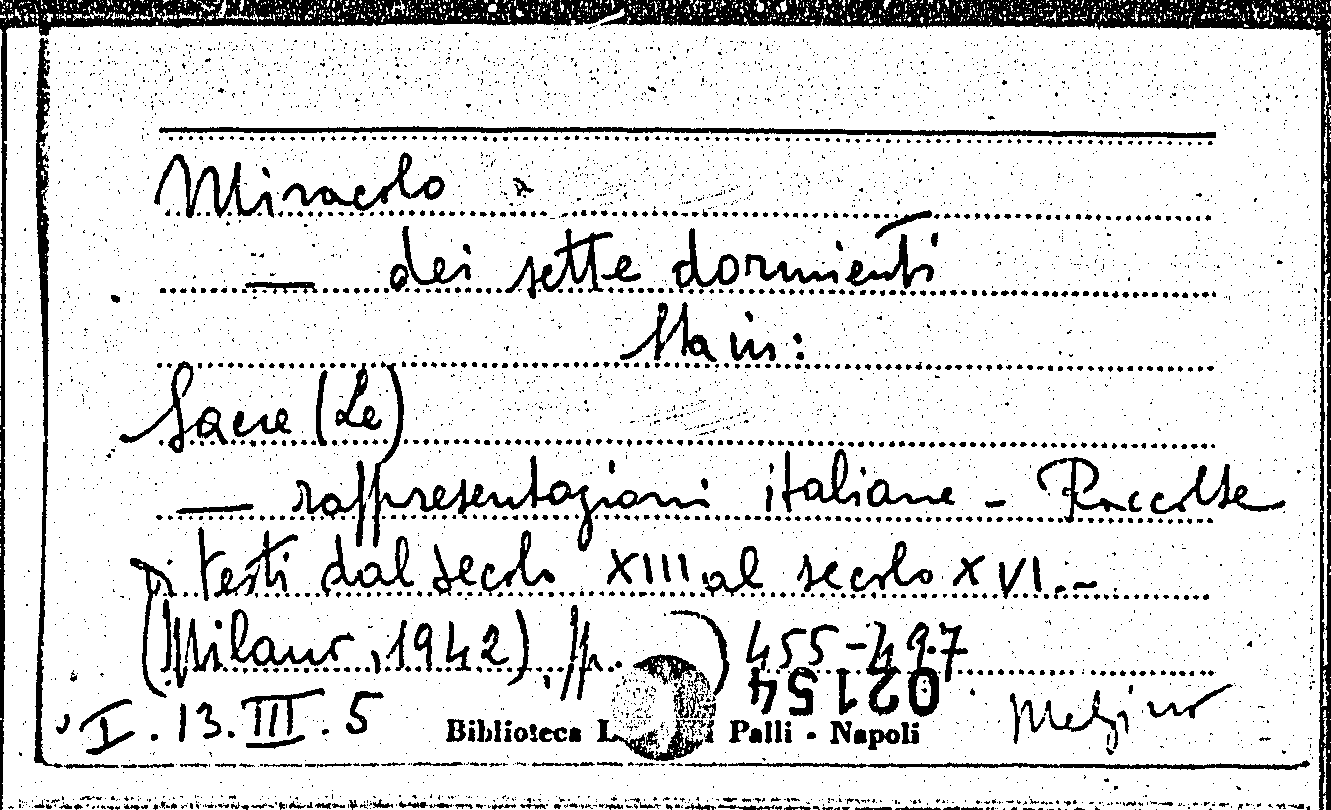 Miracolo
— dei sette dormienti
Sta in:
Sacre (Le)
— rappresentazioni italiane - Raccolte
di testi dal secolo XIII al secolo XVI.-
(Milano, 1942), pp. ) 455-497
02154
I. 13. III. 5
Biblioteca L Palli - Napoli